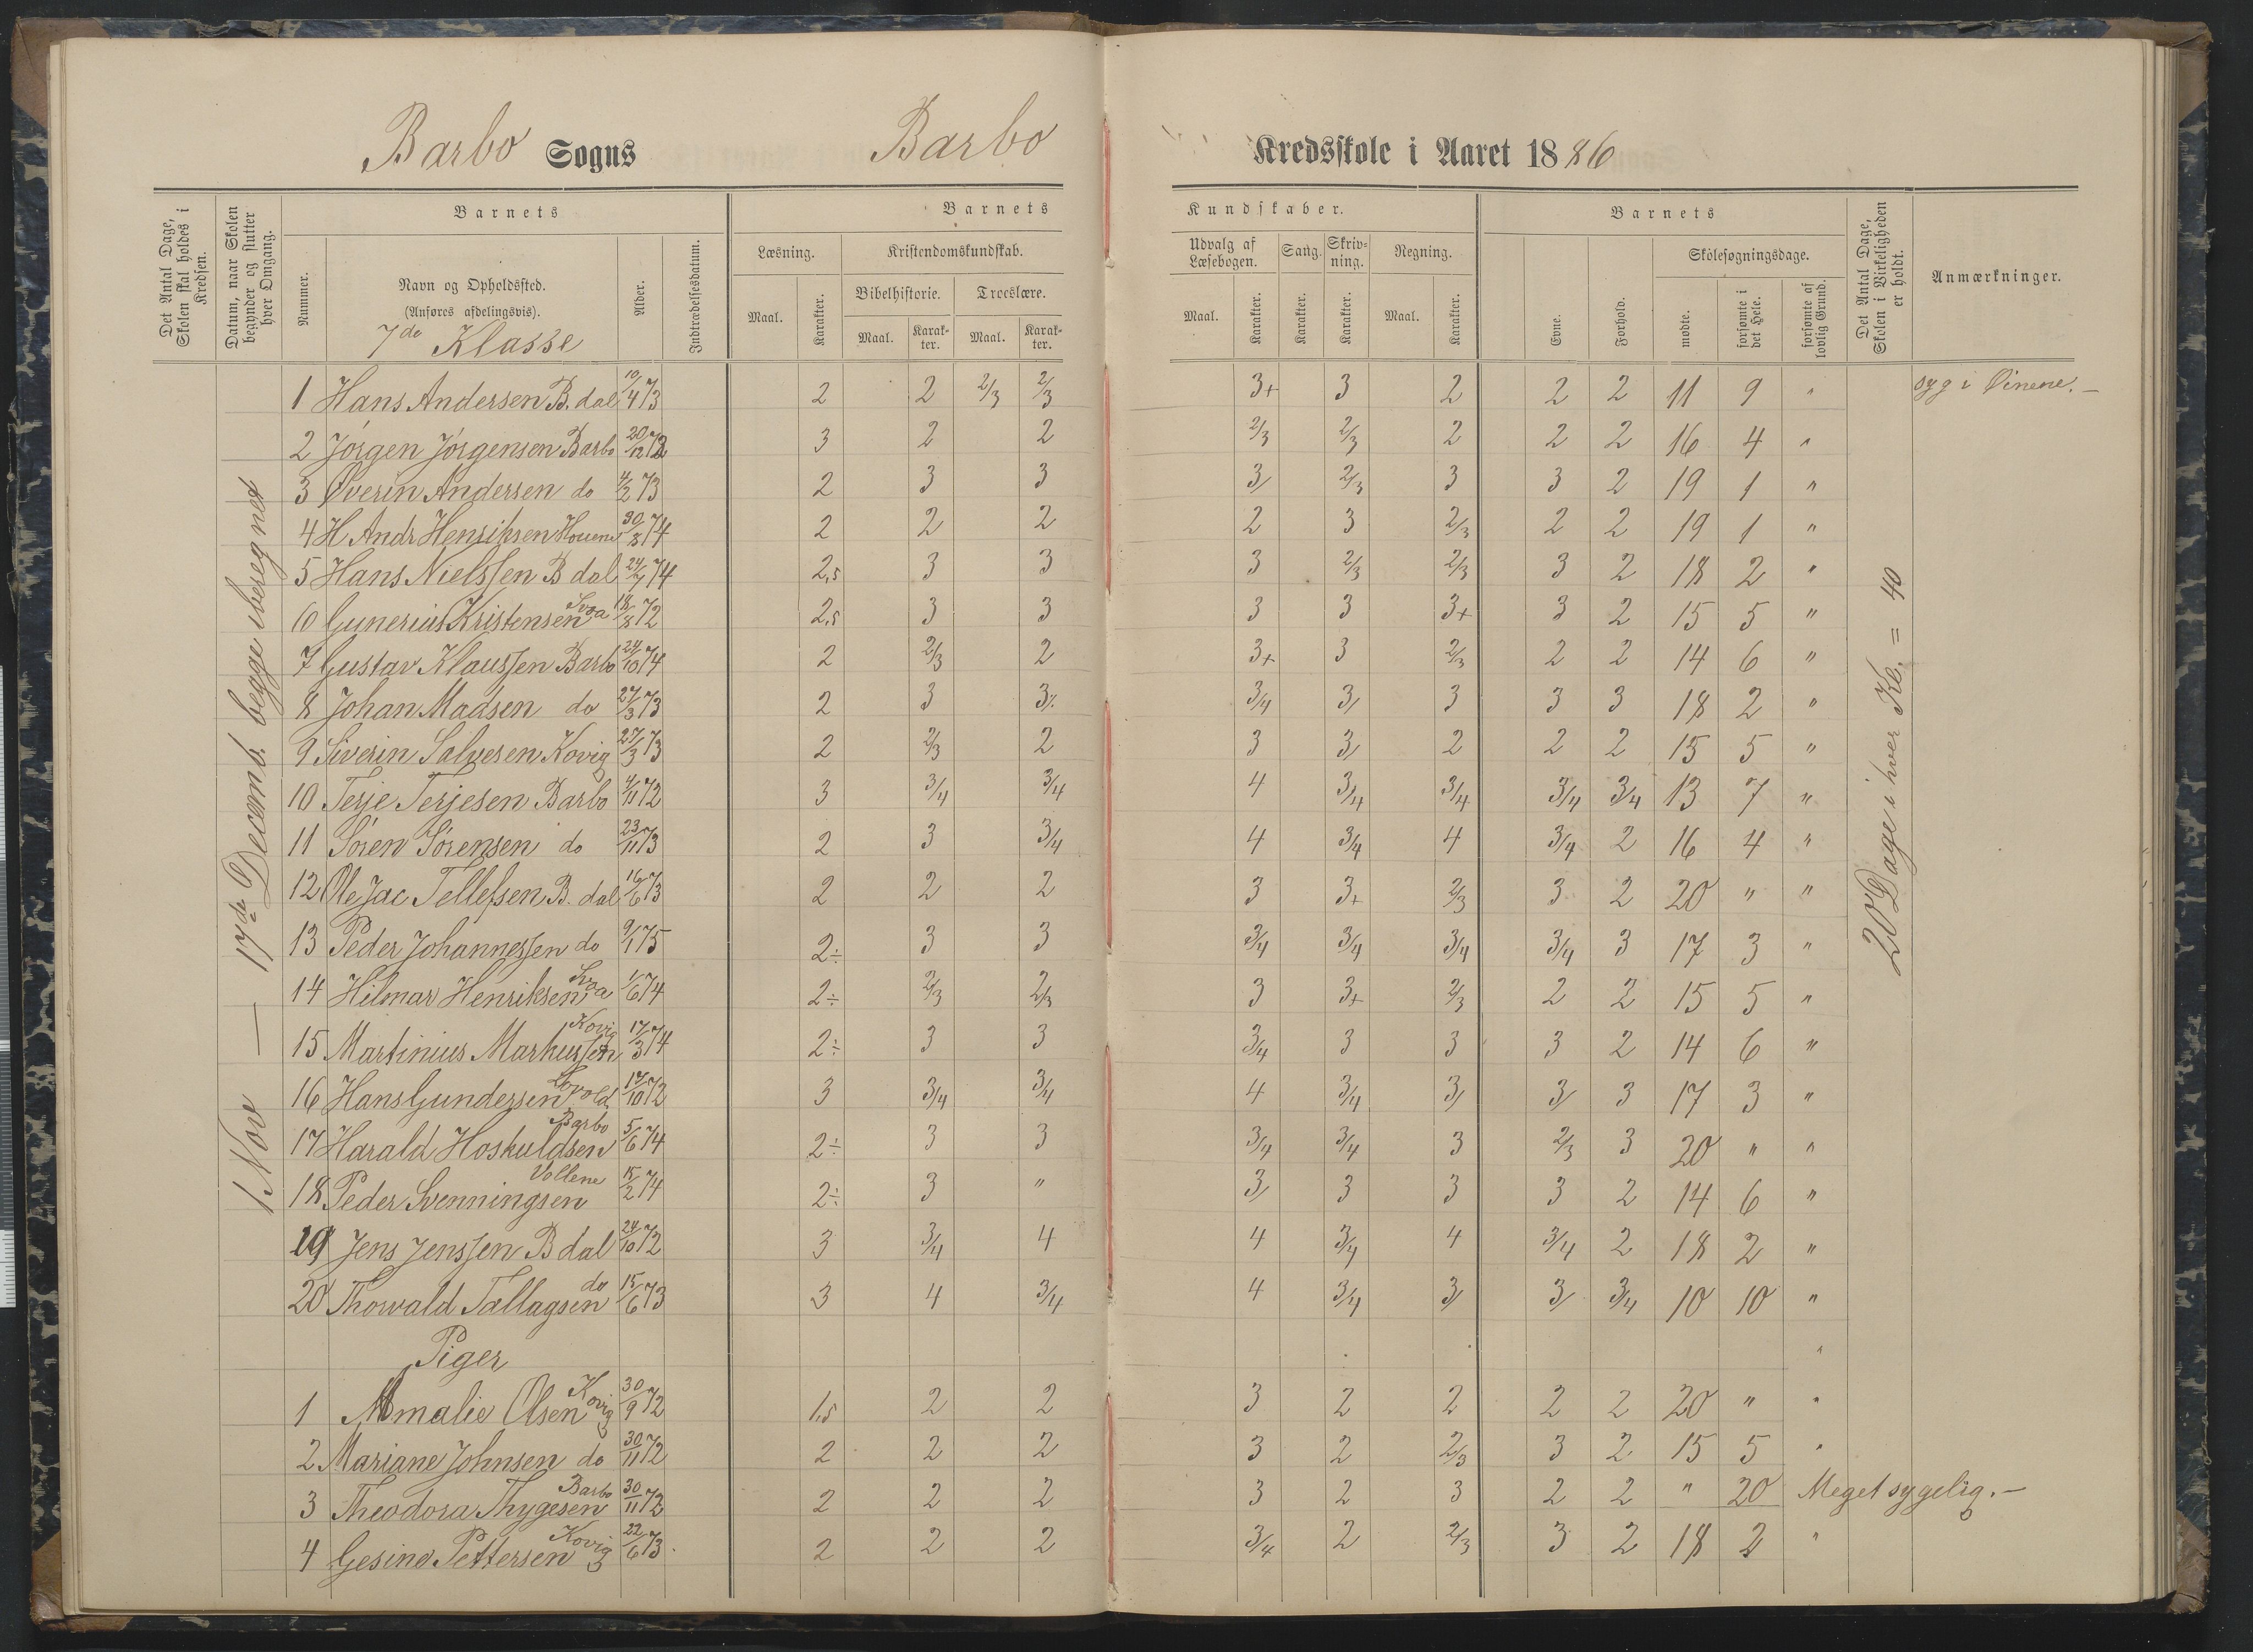 Barbo Sogns Barbo Kredsskole i Aaret 1886
Barnets Barnets Kundskaber. Barnets
Det Antal Dage, Skolen skal holdes i Kredsen.
Datum, naar Skolen begynder og slutter hver Omgang.
Nummer.
Navn og Opholdssted.
(Anføres afdelingsvis).
7de Klasse
Alder.
Indtrædelsesdatum.
Læsning. Kristendomskundskab.
Bibelhistorie. Troeslære.
Maal. Karakter. Maal. Karakter. Maal. Karakter.
Udvalg af Læsebogen. Sang. Skrivning. Regning.
Maal. Karakter. Karakter. Karakter. Maal. Karakter.
Evne. Forhold.
Skolesøgningsdage.
mødte. forsømte i det Hele. forsømte af lovlig Grund.
Det Antal Dage, Skolen i Virkeligheden er holdt.
Anmærkninger.
1 Nov — 17de Decemb. begge iberegnet
20 Dage i hver Kl. = 40
1 Hans Andersen B. dal 10/4 73 2 2 2/3 2/3 3+ 3 2 2 2 11 9 " syg i Øinene. —
2 Jørgen Jørgensen Barbo 20/12 73 3 2 2 2/3 2/3 2 2 2 16 4 "
3 Øverin Andersen do 4/2 73 2 3 3 3/ 2/3 3 3 2 19 1 "
4 H Andr Henriksen Houene 30/8 74 2 2 2 2 3 2/3 2 2 19 1 "
5 Hans Nielssen B dal 24/7 74 2,5 3 3 3 2/3 2/3 3 2 18 2 "
6 Gunerius Kristensen 18/8 72 2,5 3 3 3 3 3+ 3 2 15 5 "
7 Gustav Klaussen Barbo 24/10 74 2 2/3 2 3+ 3 2/3 2 2 14 6 "
8 Johan Madsen do 27/3 73 2 3 3/. 3/4 3/ 3 3 3 18 2 "
9 Siverin Salvesen Kovig 27/3 73 2 2/3 2 3 3/ 2 2 2 15 5 "
10 Terje Terjesen Barbo 4/11 72 3 3/4 3/4 4 3/4 3/4 3/4 3/4 13 7 "
11 Søren Sørensen do 23/11 73 2 3 3/4 4 3/4 4 3/4 2 16 4 "
12 Ole Jac Tellefsen B. dal 16/6 73 2 2 2 3 3+ 2/3 3 2 20 " "
13 Peder Johannessen do 9/1 75 2÷ 3 3 3/4 3/4 3/4 3/4 3 17 3 "
14 Hilmar Henriksen 1/6 74 2÷ 2/3 2/3 3 3+ 2/3 2 2 15 5 "
15 Martinius Markussen Kovig 17/3 74 2÷ 3 3 3/4 3 3 3 2 14 6 "
16 Hans Gundersen 17/10 72 3 3/4 3/4 4 3/4 3/ 3/ 3 17 3 "
17 Harald Hoskuldsen Barbo 5/6 74 2÷ 3 3 3/4 3/4 3 2/3 3 20 " "
18 Peder Svenningsen Vollene 15/2 74 2÷ 3 " 3/ 3 3 3 2 14 6 "
19 Jens Jenssen B dal 24/10 72 3 3/4 4 4 3/4 4 3/4 2 18 2 "
20 Thorvald Tallagsen do 15/6 73 3 4 3/4 4 3/4 3/ 3/ 3/4 10 10 "
Piger
1 Amalie Olsen Kovig 30/9 72 1,5 2 2 3 2 2 2 2 20 " "
2 Mariane Johnsen do 30/11 72 2 2 2 3 2 2/3 3 2 15 5 "
3 Theodora Thygesen Barbo 30/11 72 2 2 2 3 2 3 2 2 " 20 Meget sygelig. —
4 Gesine Pettersen Kovig 22/6 73 2 2 2 3/4 2 2/3 3 2 18 2 "